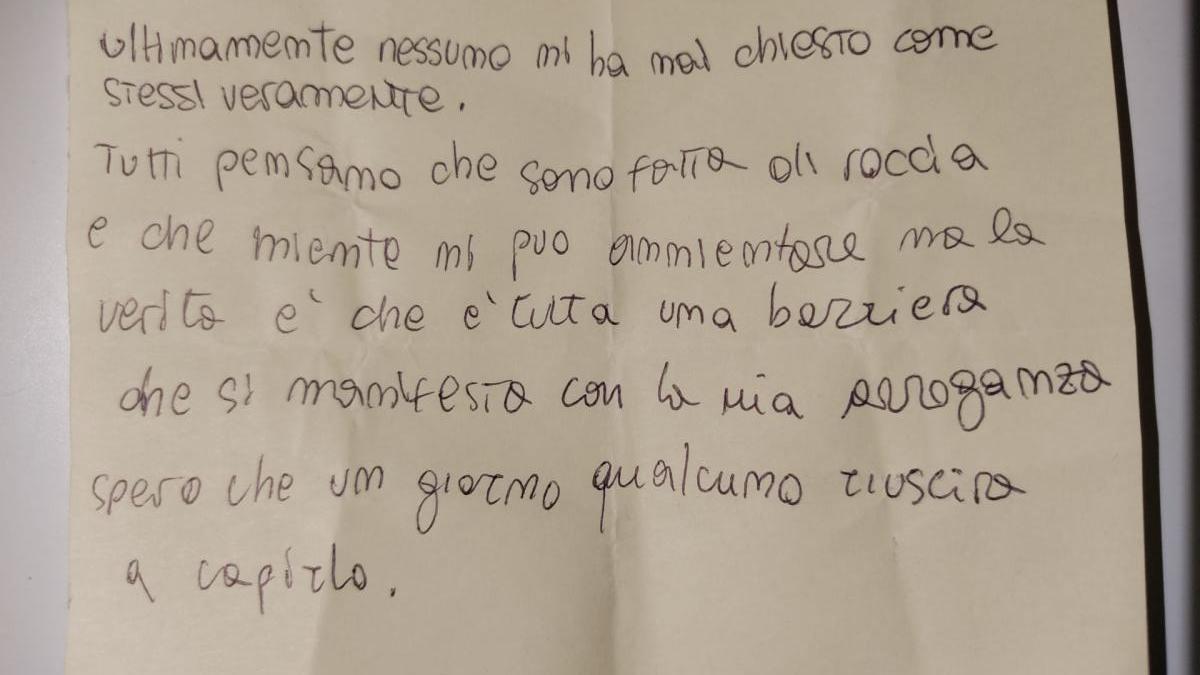 Ultimamente nessuno mi ha mai chiesto come
stessi veramente.
Tutti pensano che sono fatta di roccia
e che niente mi può annientare ma la
verità è che è tutta una barriera
che si manifesta con la mia arroganza
spero che un giorno qualcuno riuscirà
a capirlo.